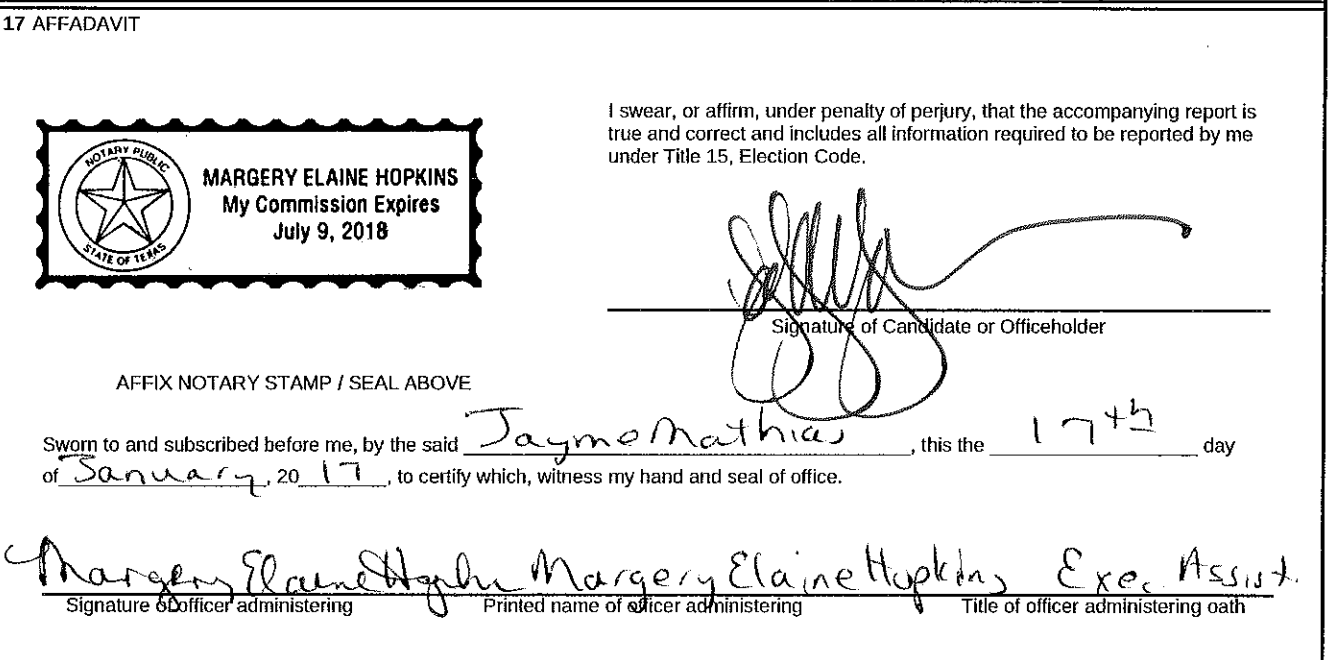 17 AFFADAVIT
NOTARY PUBLIC
STATE OF TEXAS
MARGERY ELAINE HOPKINS
My Commission Expires
July 9, 2018
I swear, or affirm, under penalty of perjury, that the accompanying report is
true and correct and includes all information required to be reported by me
under Title 15, Election Code.
Signature of Candidate or Officeholder
AFFIX NOTARY STAMP / SEAL ABOVE
Sworn to and subscribed before me, by the said Jayme Mathias, this the 17th day
of January, 20 17, to certify which, witness my hand and seal of office.
Margery Elaine Hopkins Margery Elaine Hopkins Exec Assist.
Signature of officer administering Printed name of officer administering Title of officer administering oath